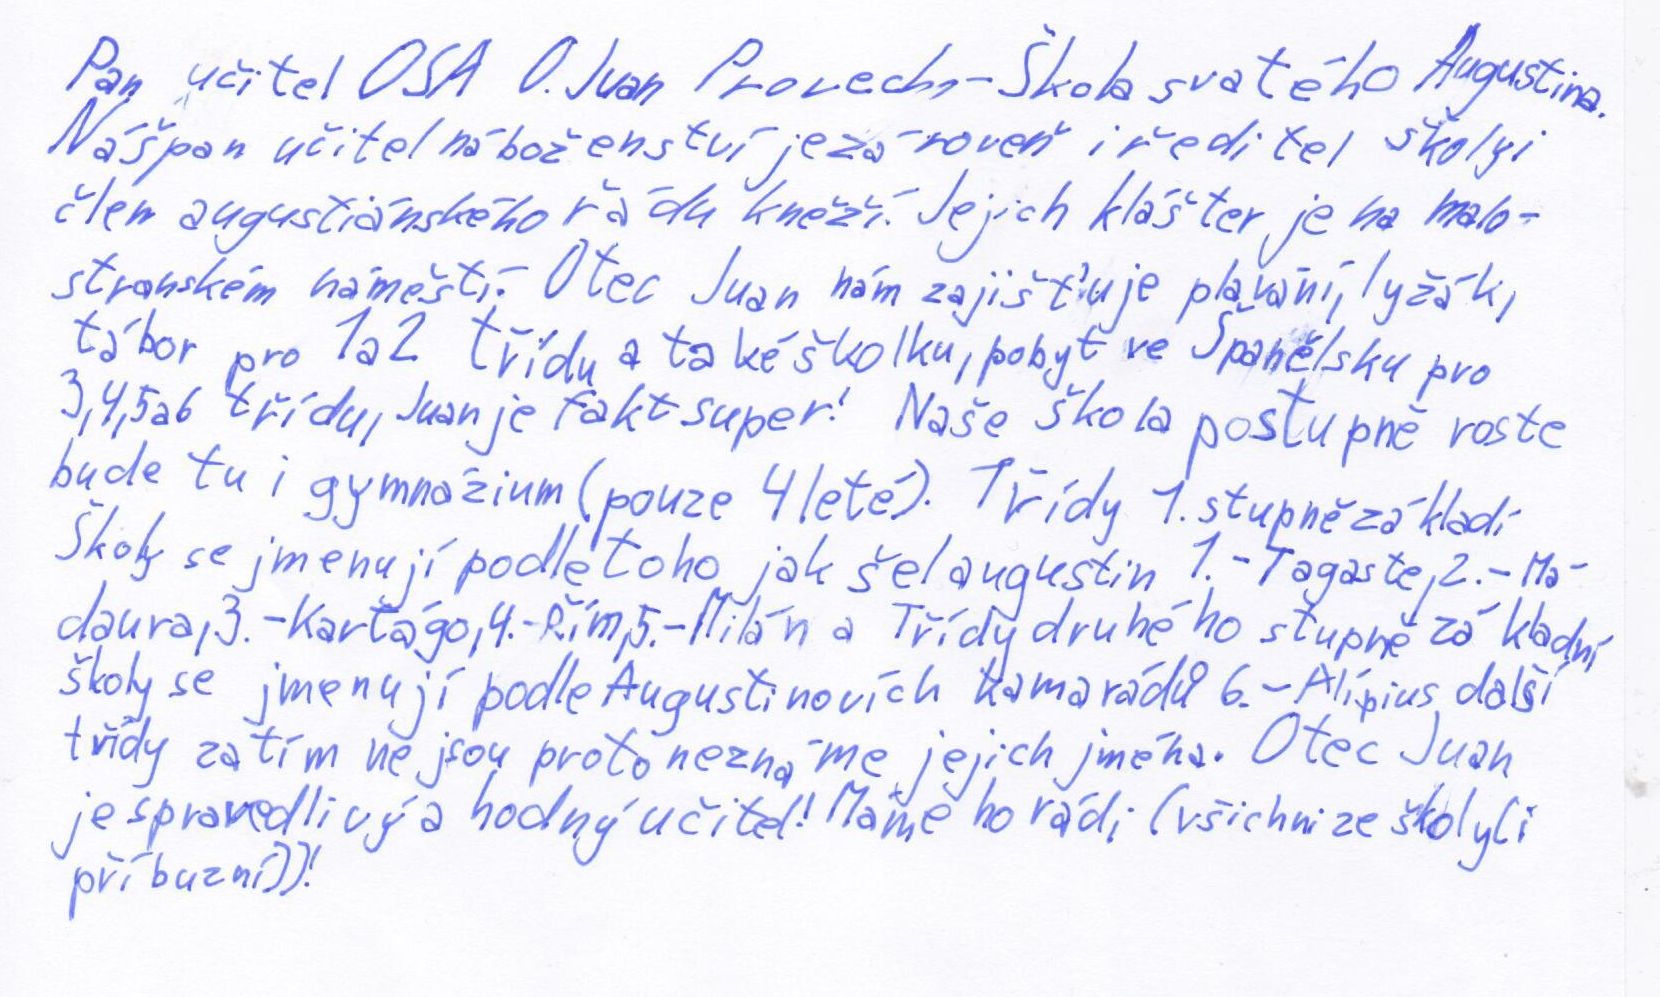 Pan učitel OSA O. Juan Provecho - Škola svatého Augustina.
Náš pan učitel náboženství je zároveň i ředitel školy i
člen augustiánského řádu kněží. Jejich klášter je na malo-
stranském náměstí. Otec Juan nám zajišťuje plavání, lyžák,
tábor pro 1a2 třídu a také školku, pobyt ve Španělsku pro
3,4,5a6 třídu, Juan je fakt super! Naše škola postupně roste
bude tu i gymnázium (pouze 4leté). Třídy 1. stupně základí
Školy se jmenují podle toho jak šel augustin 1.-Tagaste, 2.-Ma-
daura, 3.-Kartágo, 4.-Řím, 5.-Milán a Třídy druhého stupně základní
školy se jmenují podle Augustinových kamarádů 6.-Alípius další
třídy zatím nejsou proto neznáme jejich jména. Otec Juan
je spravedlivý a hodný učitel! Máme ho rádi (všichni ze školy(i
příbuzní))!